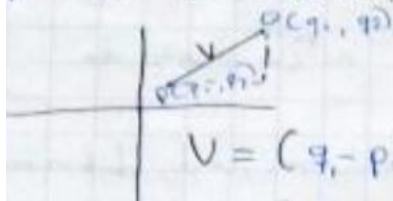 Q(q₁, q₂)
V
P(p₁, p₂)
V = (q₁ - p